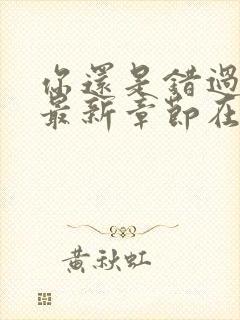 你還是錯過
最新章節在
黃秋虹